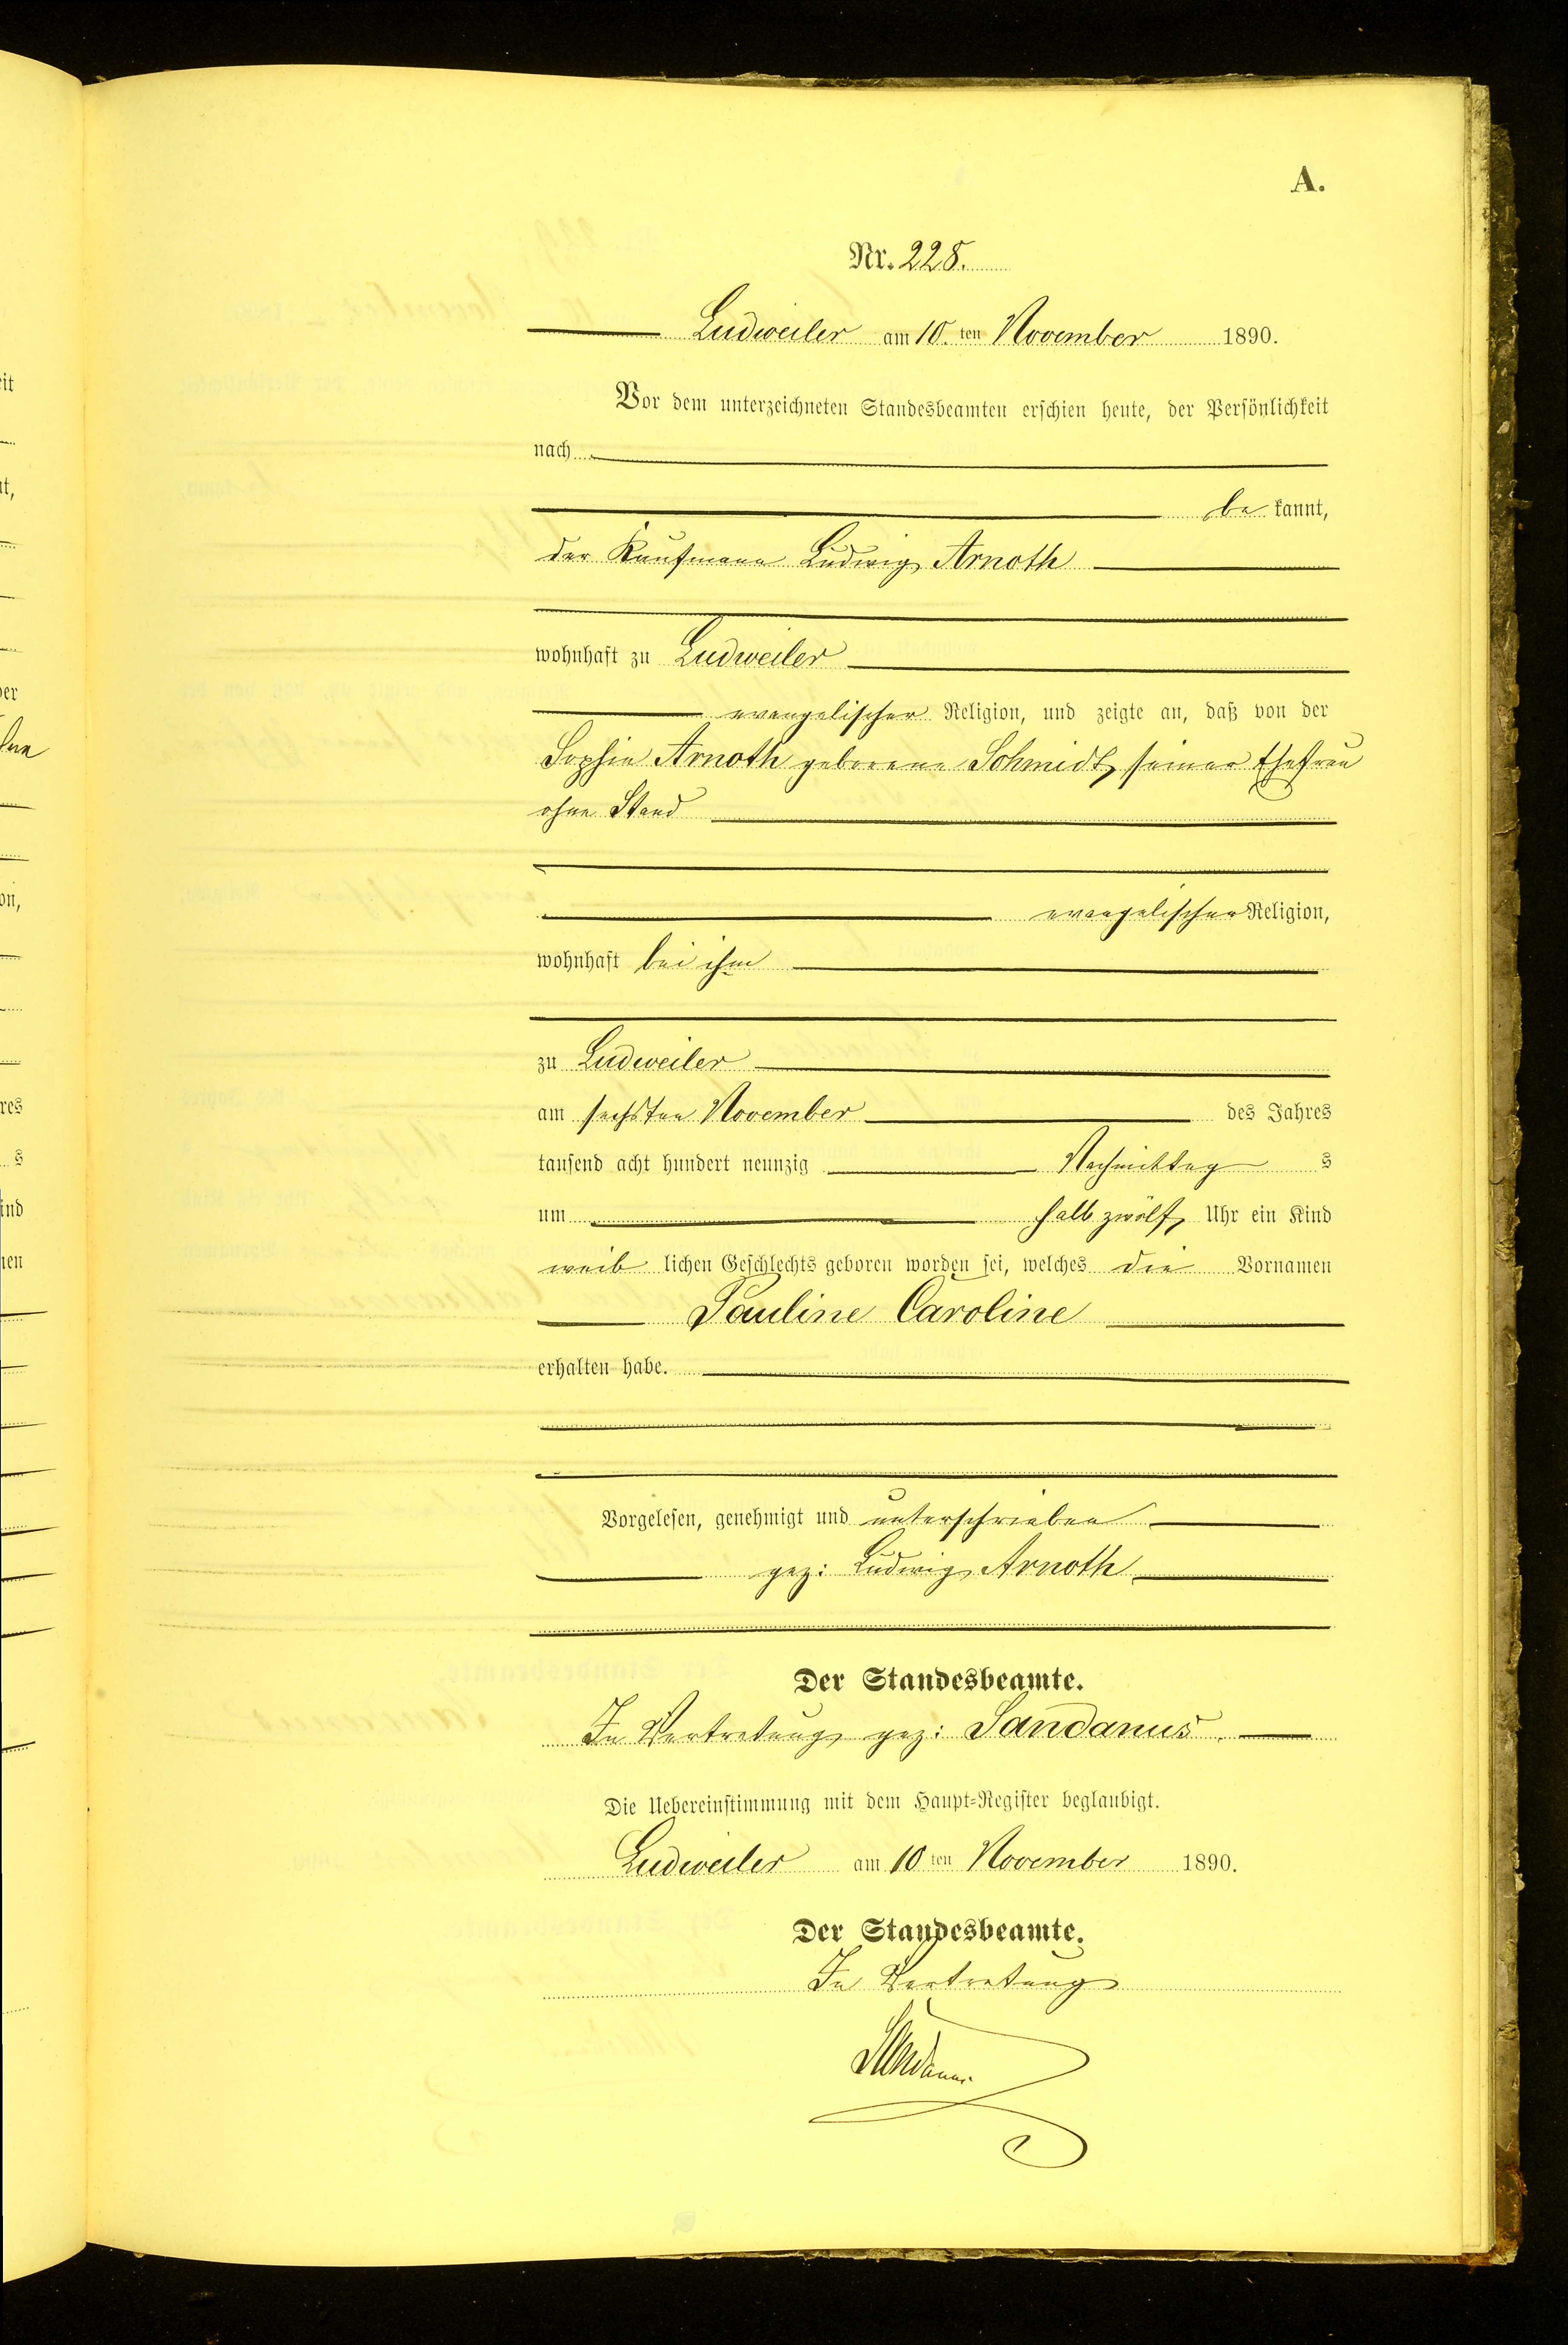 A.
Nr. 228.
Ludweiler am 10. ten November 1890.
Vor dem unterzeichneten Standesbeamten erschien heute, der Persönlichkeit
nach
be kannt,
der Kaufmann Ludwig Arnoth
wohnhaft zu Ludweiler
evangelischer Religion, und zeigte an, daß von der
Sophie Arnoth geborene Schmidt, seiner Ehefrau
ohne Stand
evangelischer Religion,
wohnhaft bei ihm
zu Ludweiler
am sechsten November des Jahres
tausend acht hundert neunzig Nachmittag s
um halb zwölf Uhr ein Kind
weib lichen Geschlechts geboren worden sei, welches die Vornamen
Pauline Caroline
erhalten habe.
Vorgelesen, genehmigt und unterschrieben
gez: Ludwig Arnoth
Der Standesbeamte.
In Vertretung gez: Sandanus.
Die Uebereinstimmung mit dem Haupt-Register beglaubigt.
Ludweiler am 10 ten November 1890.
Der Standesbeamte.
In Vertretung
Sandanus